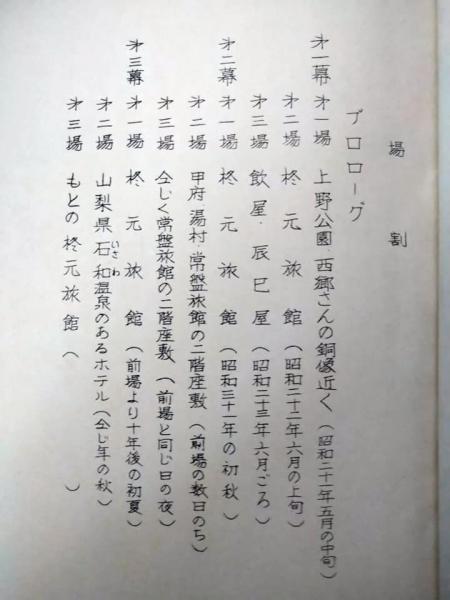 場割
プロローグ
第一幕 第一場 上野公園、西郷さんの銅像近く(昭和二十一年五月の中旬)
第二場 柊元旅館(昭和二十二年六月の上旬)
第三場 飲屋・辰巳屋(昭和二十三年六月ごろ)
第二幕 第一場 柊元旅館(昭和三十一年の初秋)
第二場 甲府、湯村・常盤旅館の二階座敷(前場の数日のち)
第三場 仝じく常盤旅館の二階座敷(前場と同じ日の夜)
第三幕 第一場 柊元旅館(前場より十年後の初夏)
第二場 山梨県石和温泉のあるホテル(仝じ年の秋)
いさわ
第三場 もとの柊元旅館( )